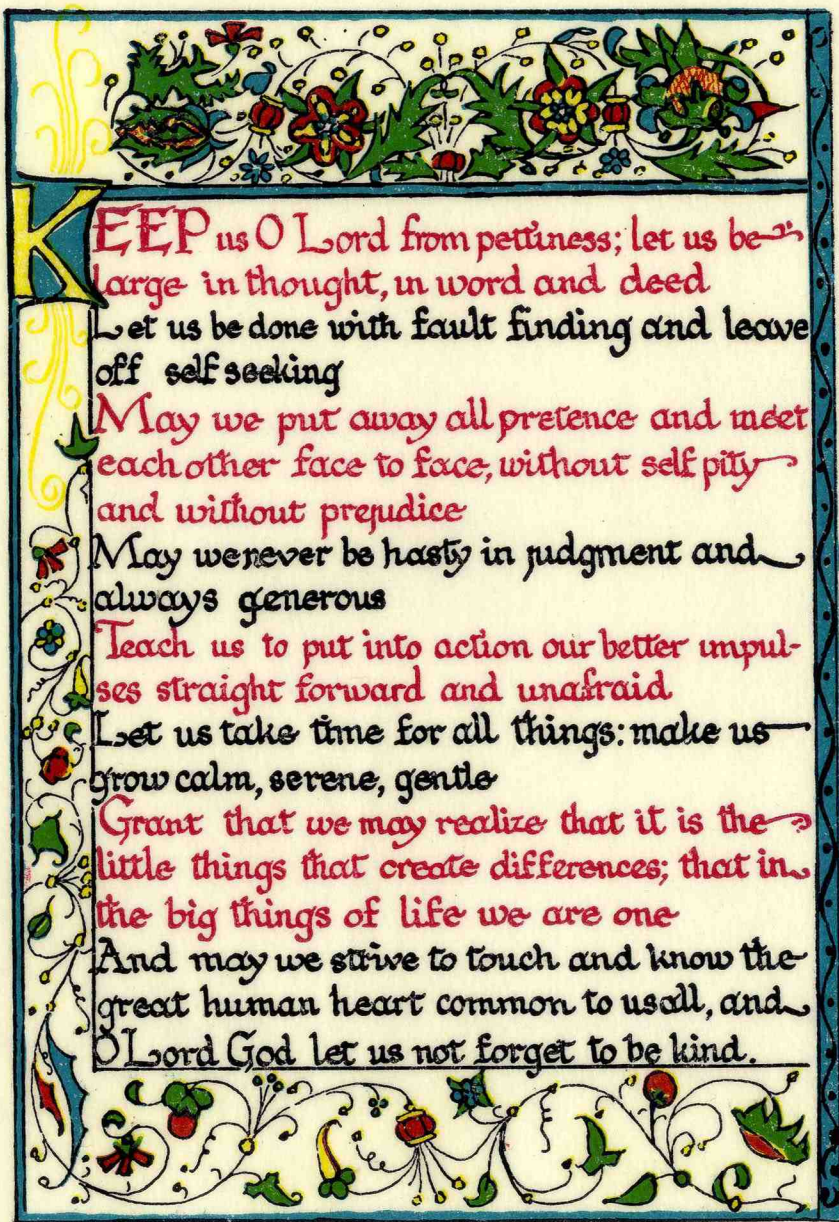 KEEP us O Lord from pettiness; let us be
large in thought, in word and deed
Let us be done with fault finding and leave
off self seeking
May we put away all pretence and meet
each other face to face, without self pity
and without prejudice
May we never be hasty in judgment and
always generous
Teach us to put into action our better impul-
ses straight forward and unafraid
Let us take time for all things: make us
grow calm, serene, gentle
Grant that we may realize that it is the
little things that create differences; that in
the big things of life we are one
And may we strive to touch and know the
great human heart common to us all, and
O Lord God let us not forget to be kind.